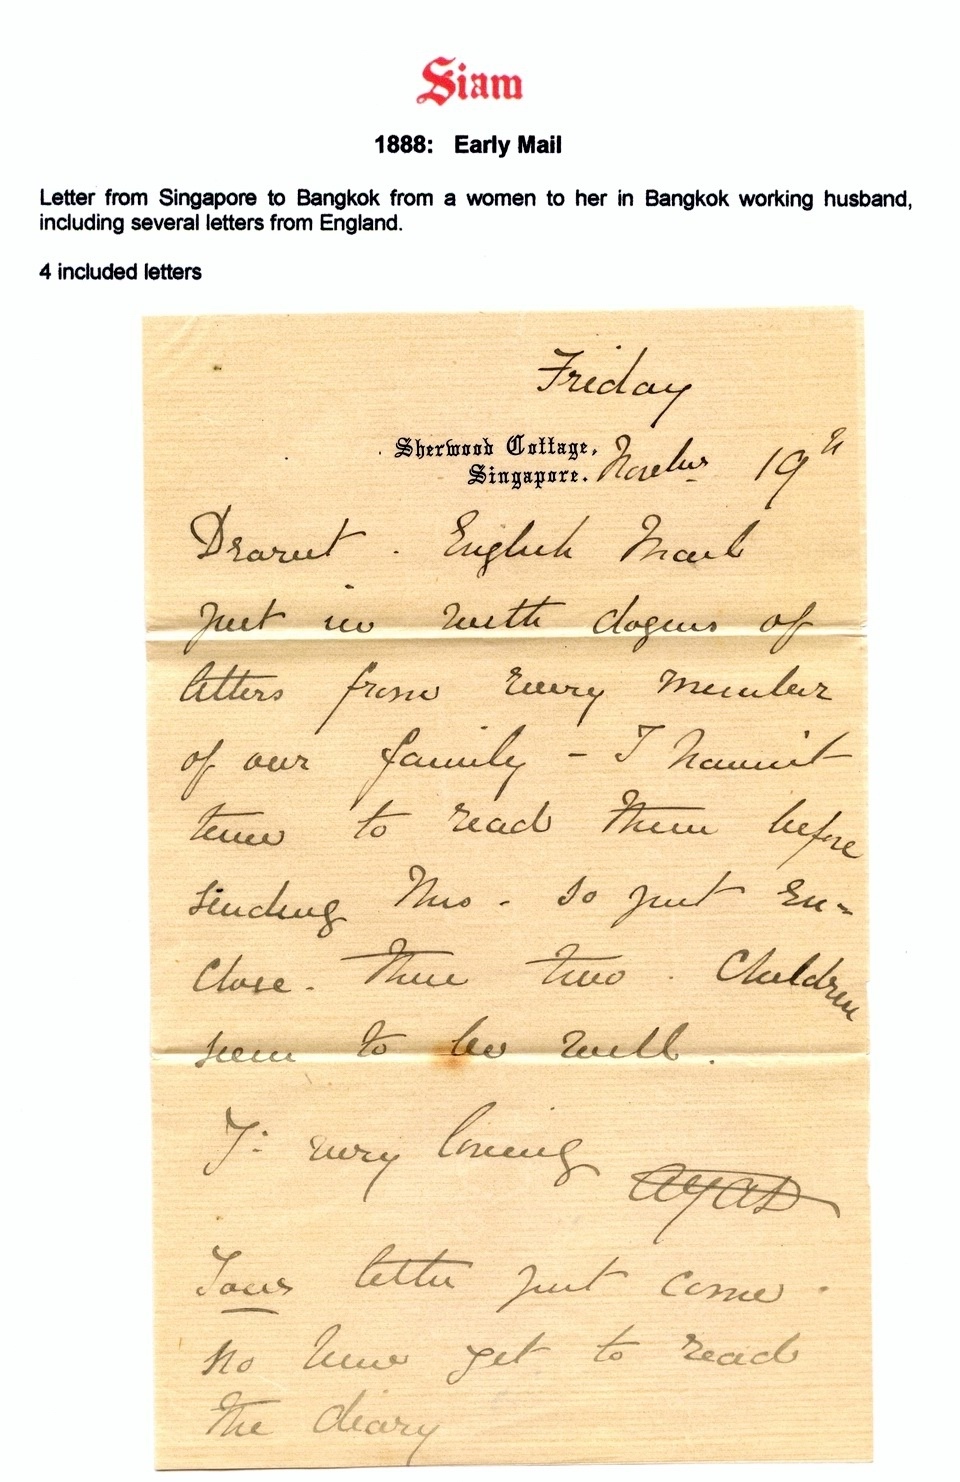 Siam
1888: Early Mail
Letter from Singapore to Bangkok from a women to her in Bangkok working husband,
including several letters from England.
4 included letters
Friday
Sherwood Cottage,
Singapore. Novebr 19th
Dearest. English Mail
just in with dozens of
letters from every member
of our family - I haven't
time to read them before
sending this. so just en-
close. these two. Children
seem to be well.
Yr: very loving
Your letter just come.
no time yet to read
the diary